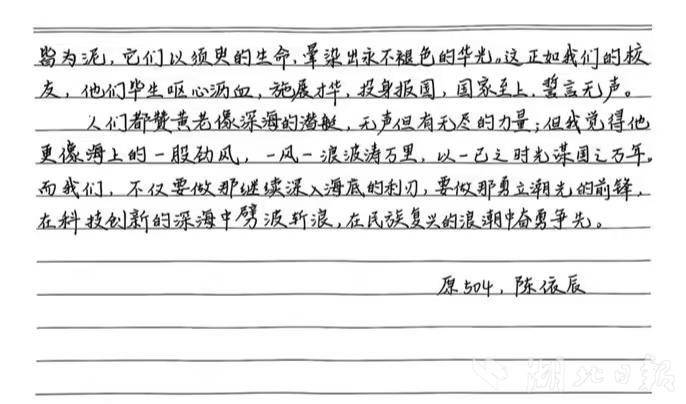 皆为泥，它们以须臾的生命，晕染出永不褪色的华光。这正如我们的校
友，他们毕生呕心沥血，施展才华，投身报国，国家至上，誓言无声。
人们都赞黄老像深海的潜艇，无声但有无尽的力量；但我觉得他
更像海上的一股劲风，一风一浪波涛万里，以一己之时光谋国之万年。
而我们，不仅要做那继续深入海底的利刃，要做那勇立潮光的前锋，
在科技创新的深海中劈波斩浪，在民族复兴的浪潮中奋勇争先。
原504，陈依辰
湖北日报